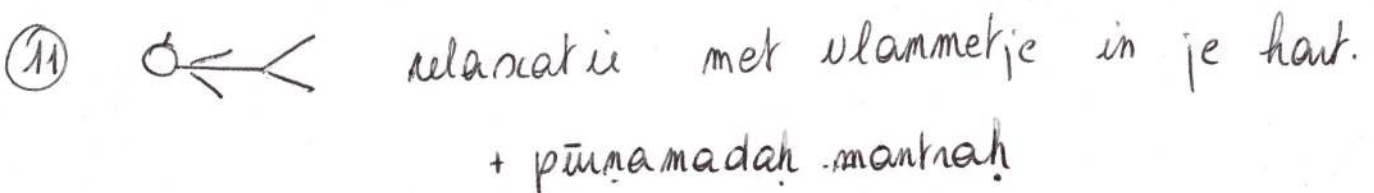 11 relaxatie met vlammetje in je hart.
+ pūrṇamadaḥ mantraḥ